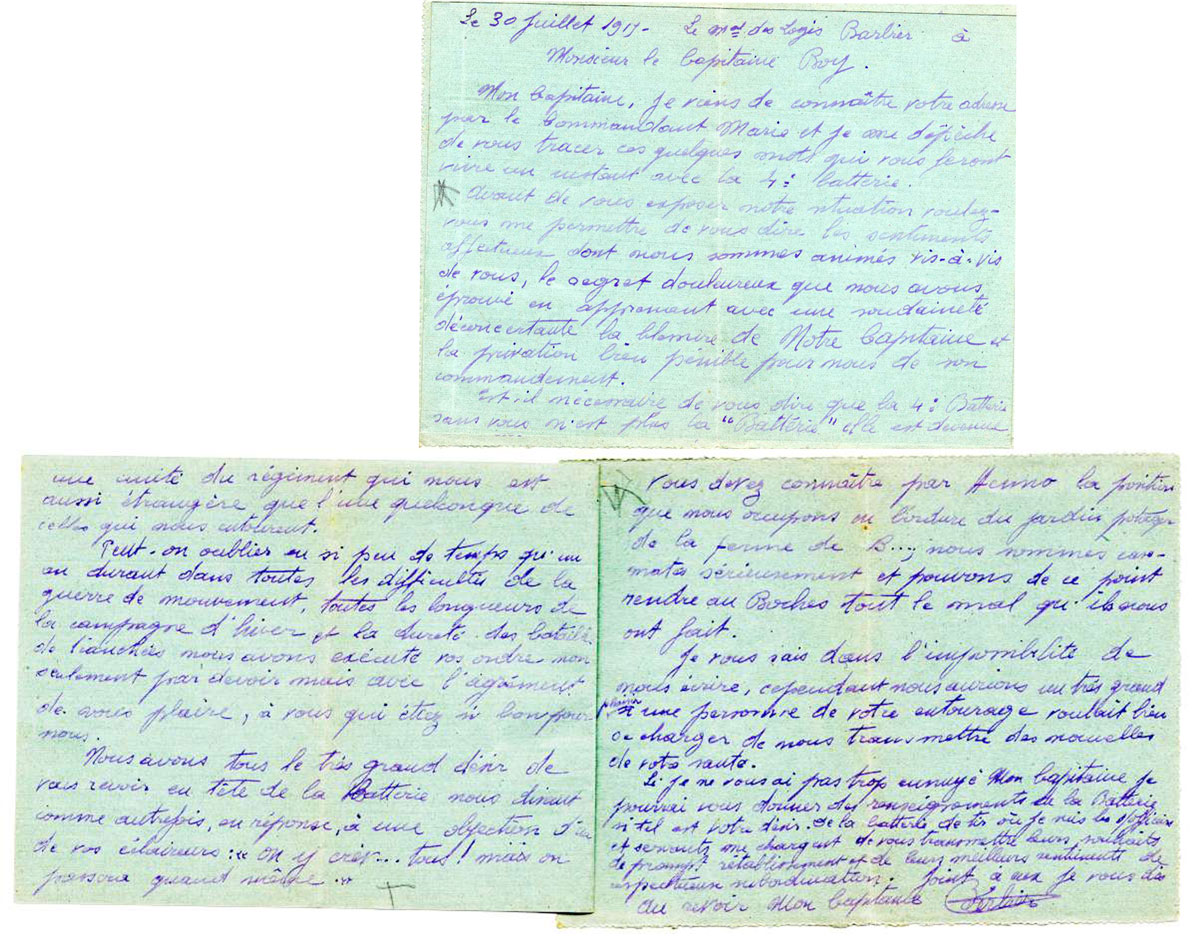 Le 30 Juillet 191 - Le Mal des Logis Barbier à
Monsieur le Capitaine Roy.
Mon Capitaine, je viens de connaître votre adresse
par le Commandant Marie et je me dépêche
de vous tracer ces quelques mots qui vous feront
vivre un instant avec la 4e batterie.
Avant de vous exposer notre situation voulez-
vous me permettre de vous dire les sentiments
affectueux dont nous sommes animés vis-à-vis
de vous, le regret douloureux que nous avons
éprouvé en apprenant avec une soudaineté
déconcertante la blessure de Notre Capitaine et
la privation bien pénible pour nous de son
commandement.
Est-il nécessaire de vous dire que la 4e Batterie
sans vous n'est plus la "Batterie" elle est devenue
une unité du régiment qui nous est
aussi étrangère que l'une quelconque de
celles qui nous entourent.
Peut-on oublier en si peu de temps qu'un
an durant dans toutes les difficultés de la
guerre de mouvement, toutes les longueurs de
la campagne d'hiver et la dureté des batailles
de tranchées nous avons exécuté vos ordre non
seulement par devoir mais avec l'agrément
de vous plaire, à vous qui étiez si bon pour
nous.
Nous avons tous le très grand désir de
vous revoir en tête de la Batterie nous disant
comme autrefois, en réponse, à une objection d'un
de vos éclaireurs : "on y crèv... tous ! mais on
passera quand même..."
Vous devez connaître par Henno la position
que nous occupons en bordure du jardin potager
de la ferme de B..., nous sommes case-
matés sérieusement et pouvons de ce point
rendre au Boches tout le mal qu'ils nous
ont fait.
Je vous sais dans l'impossibilité de
nous écrire, cependant nous aurions un très grand
plaisir si une personne de votre entourage voulait bien
se charger de nous transmettre des nouvelles
de votre santé.
Si je ne vous ai pas trop ennuyé Mon Capitaine je
pourrai vous donner des renseignements de la Batterie
si tel est votre désir. De la batterie de tir où je suis les officiers
et servants me chargent de vous transmettre leurs souhaits
de prompt rétablissement et de leurs meilleurs sentiments de
respectueux subordination. Joint à eux je vous dis
au revoir Mon Capitaine Barbier